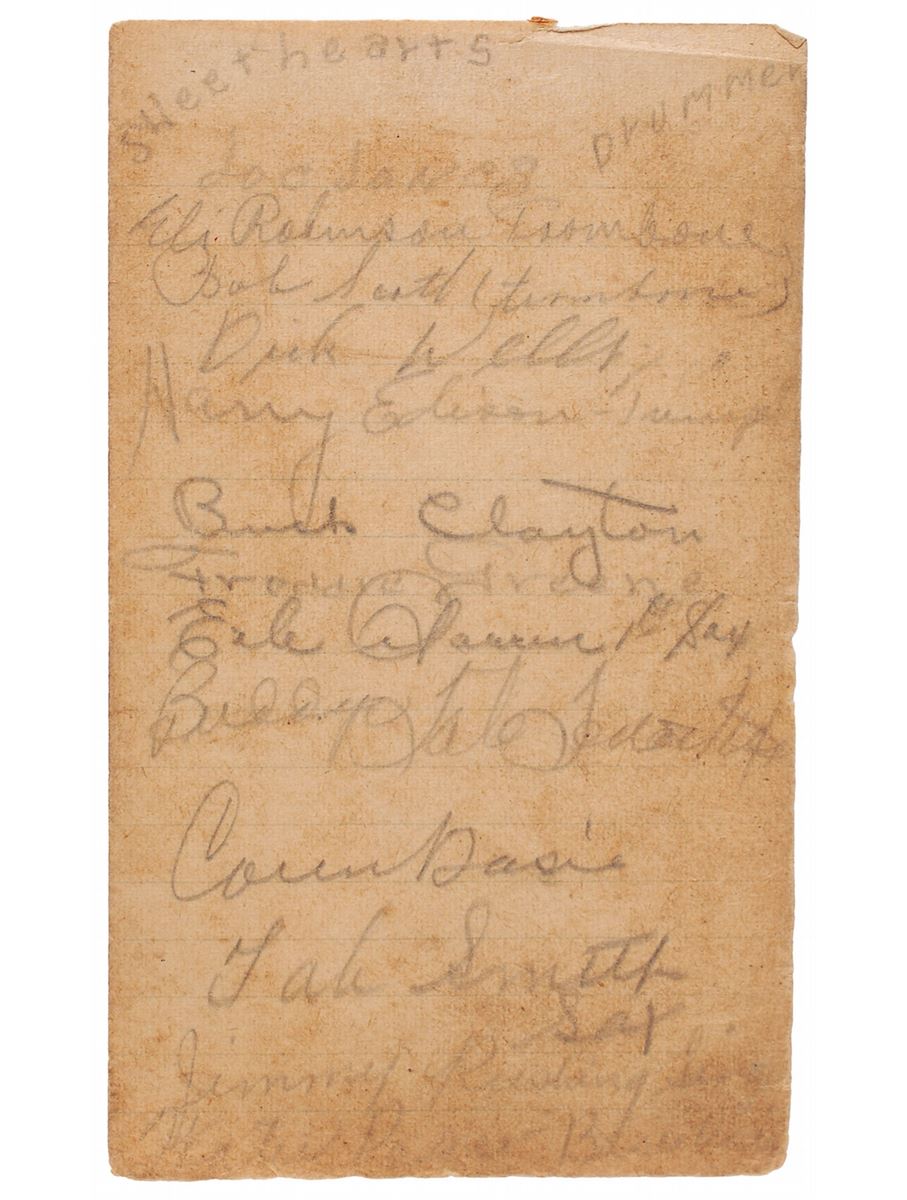 Sweethearts
Drummer
Eli Robinson Trombone
Bob Scott (trombone)
Dick Wells
Harry Edison - Trump
Buck Clayton
Earle Warren 1st Sax
Buddy Tate
Count Basie
Tab Smith
Sax
Jimmy Rushing